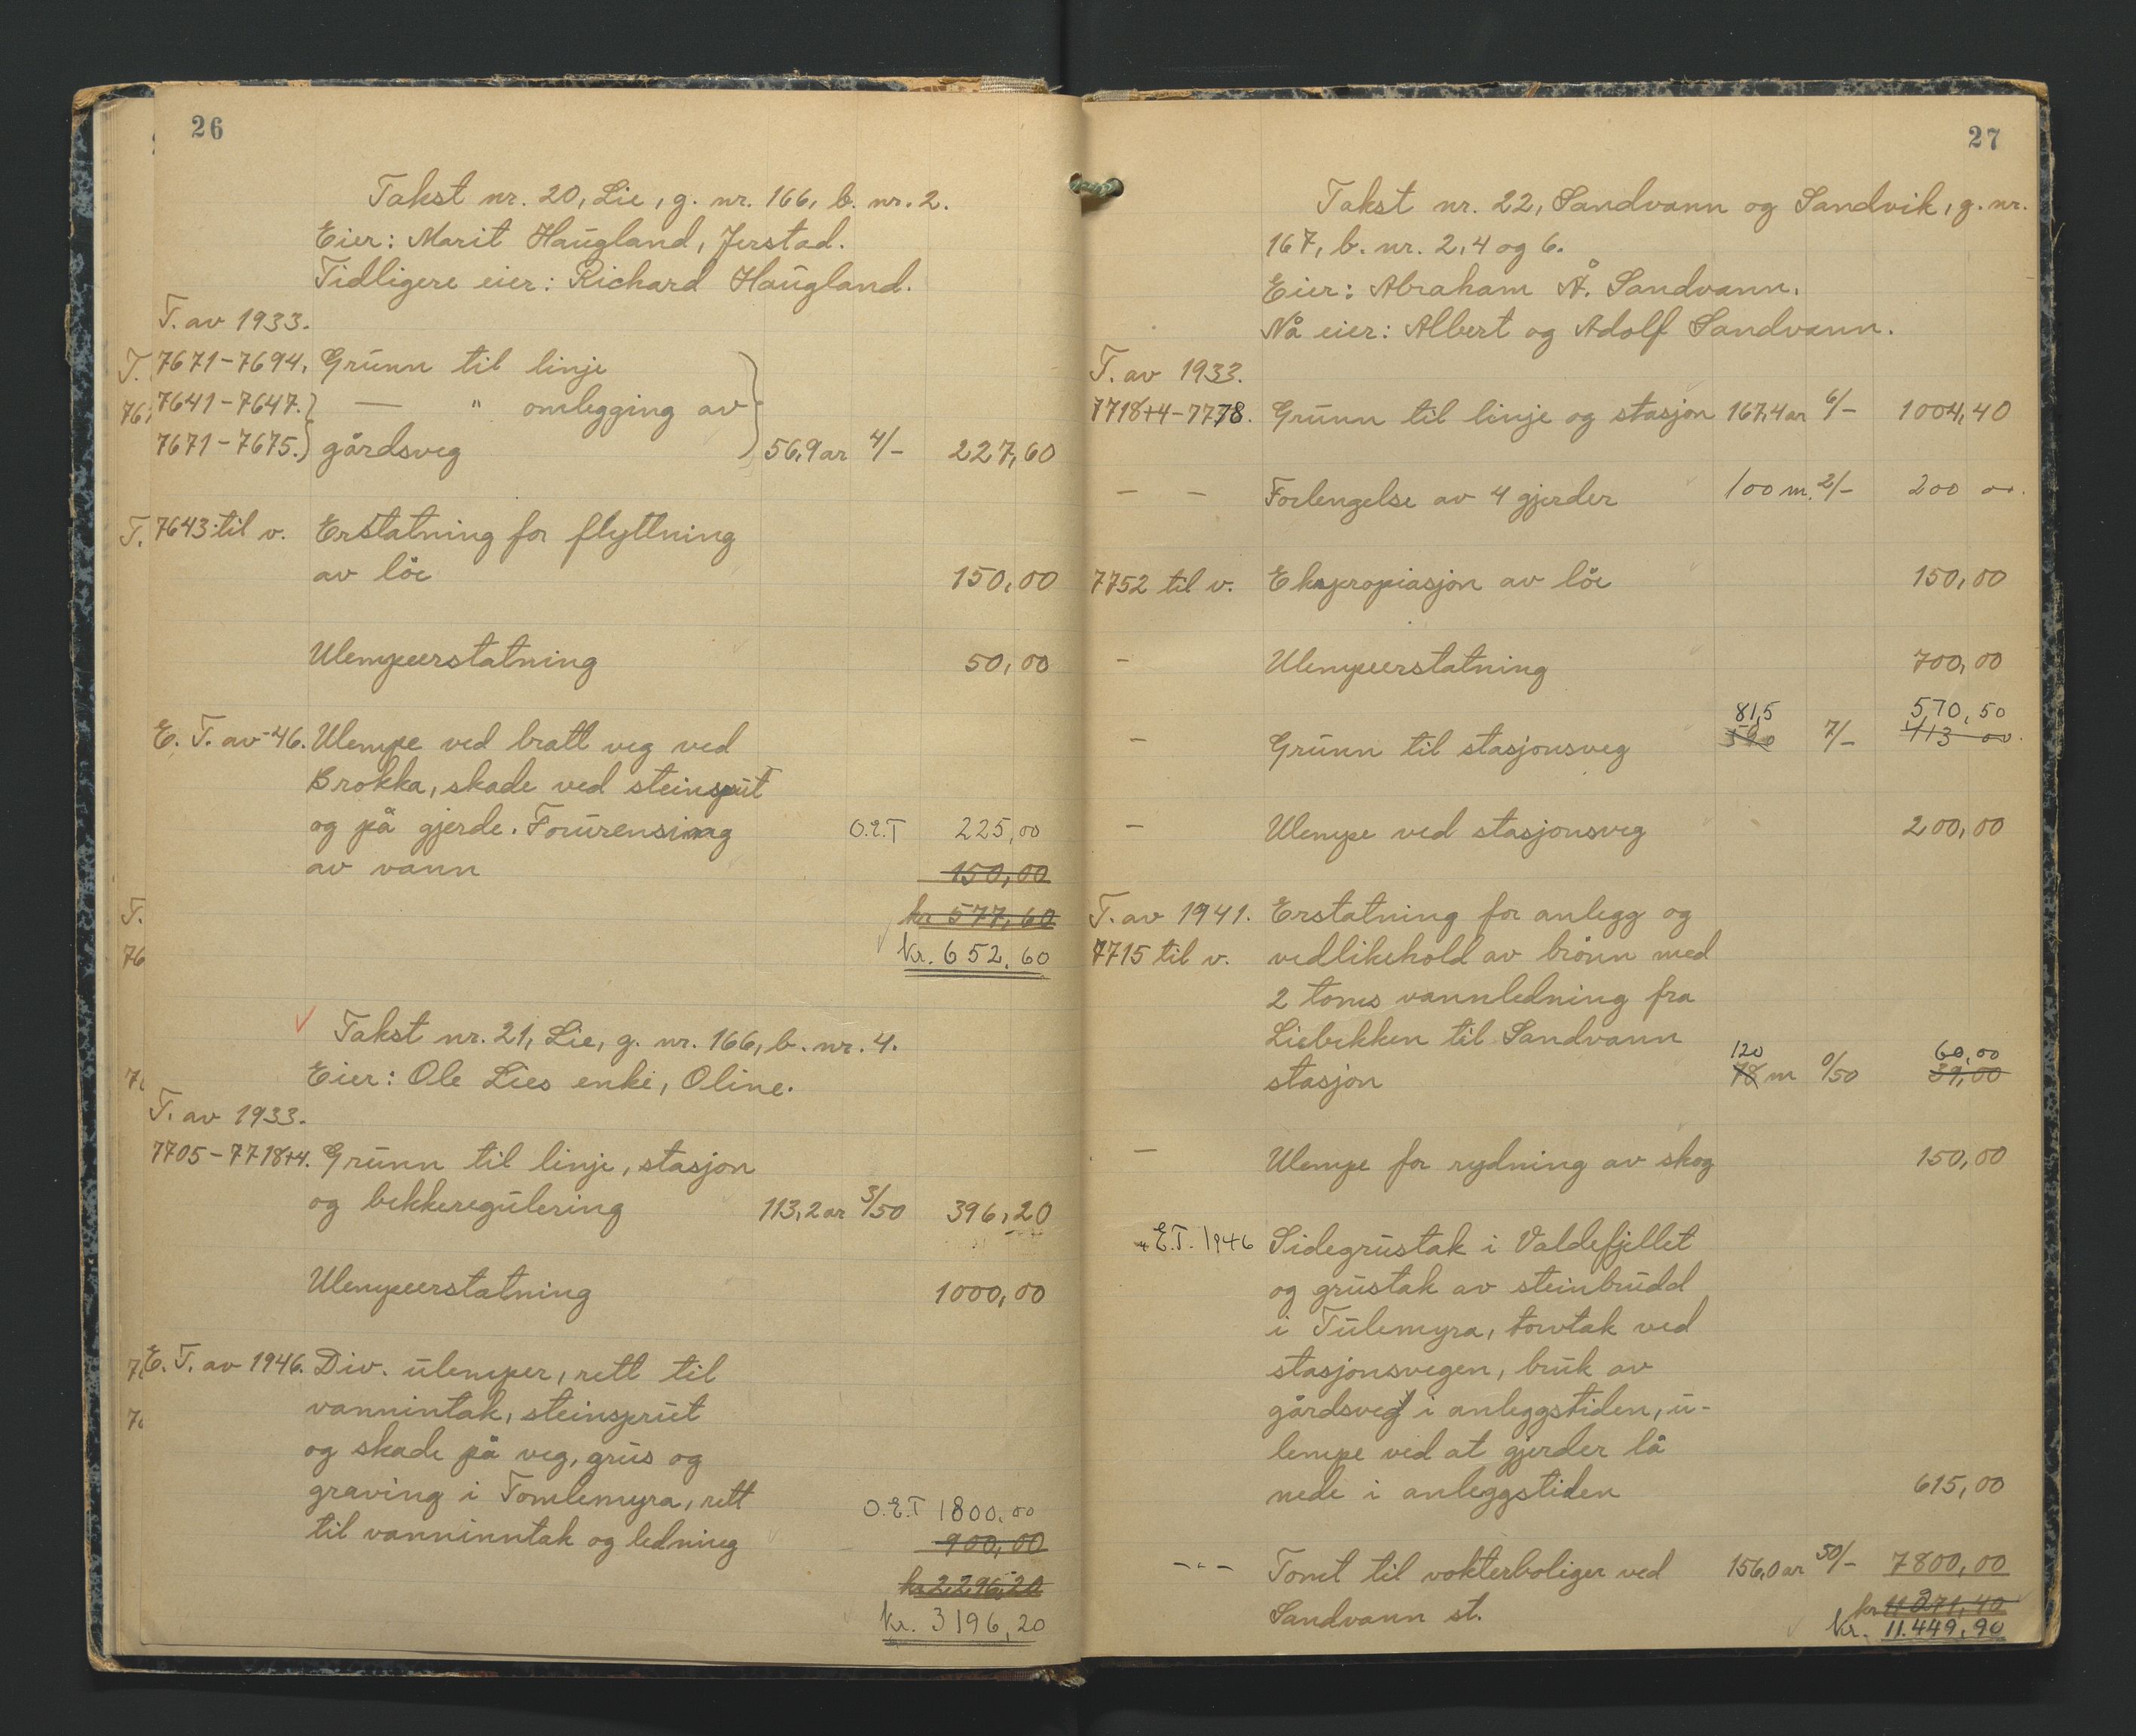 26
Takst nr. 20, Lie, g. nr. 166, b. nr. 2.
Eier: Marit Haugland, Jerstad.
Tidligere eier: Richard Haugland.
T. av 1933.
7671-7694. Grunn til linje
7641-7647. — " omlegging av
7671-7675. gårdsveg 56,9 ar 4/- 227,60
7643 til v. Erstatning for flyttning
av löe 150,00
Ulempeerstatning 50,00
E. T. av -46. Ulempe ved bratt veg ved
Brokka, skade ved steinsprut
og på gjerde. Forurensing O.E.T 225,00
av vann 150,00
kr 577,60
Kr. 652,60
Takst nr. 21, Lie, g. nr. 166, b. nr. 4.
Eier: Ole Lies enke, Oline.
T. av 1933.
7705-7718+4. Grunn til linje, stasjon
og bekkeregulering 113,2 ar 3/50 396,20
Ulempeerstatning 1000,00
E. T. av 1946. Div. ulemper, rett til
vannintak, steinsprut
og skade på veg, grus og
graving i Tomlemyra, rett O.E.T 1800,00
til vanninntak og ledning 900,00
kr 2296,20
Kr. 3196,20
27
Takst nr. 22, Sandvann og Sandvik, g. nr.
167, b. nr. 2, 4 og 6.
Eier: Abraham Å. Sandvann.
Nå eier: Albert og Adolf Sandvann.
T. av 1933.
7718+4-7778. Grunn til linje og stasjon 167,4 ar 6/- 1004,40
— — Forlengelse av 4 gjerder 100 m. 2/- 200 00.
7752 til v. Ekspropiasjon av löe 150,00
— Ulempeerstatning 700,00
81,5 570,50
— Grunn til stasjonsveg 590 7/- 413 00.
— Ulempe ved stasjonsveg 200,00
T. av 1941. Erstatning for anlegg og
7715 til v. vedlikehold av brönn med
2 toms vannledning fra
Liebekken til Sandvann
120 60,00
stasjon 78 m 0/50 39,00
— Ulempe for rydning av skog 150,00
" E.T. 1946 Sidegrustak i Valdefjellet
og grustak av steinbrudd
i Tulemyra, torvtak ved
stasjonsvegen, bruk av
gårdsveg i anleggstiden, u-
lempe ved at gjerder lå
nede i anleggstiden 615,00
- " - Tomt til vokterboliger ved 156,0 ar 50/- 7800,00
Sandvann st. kr 11271,40
Kr. 11.449,90